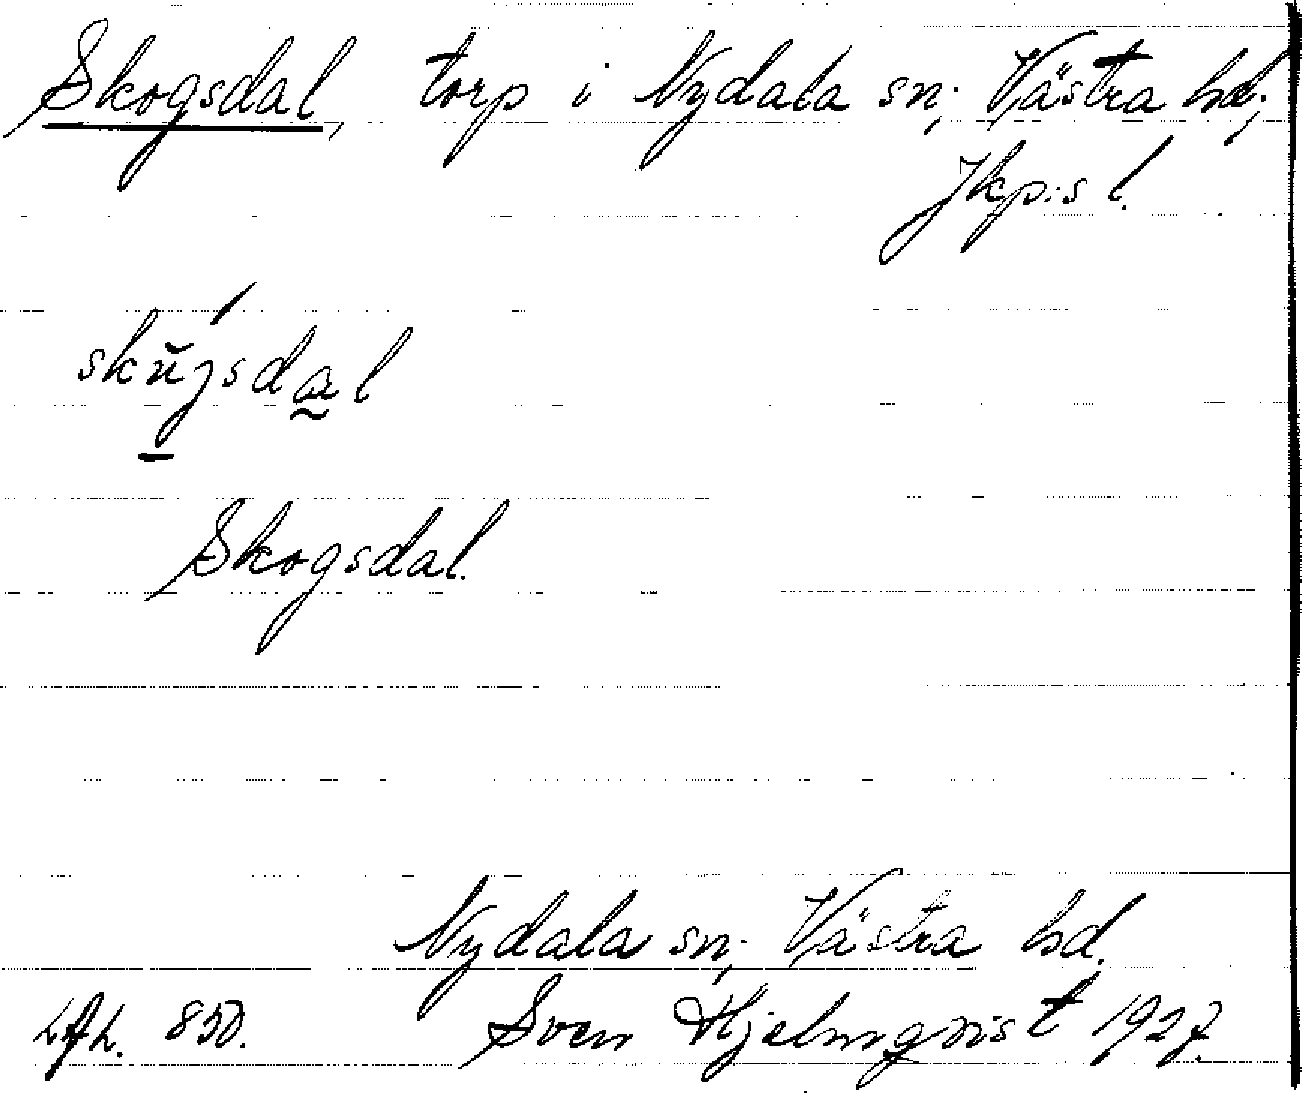 Skogsdal, torp i Nydala sn; Västra hd;
Jkp:s l.
Skogsdal.
Nydala sn; Västra hd.
850. Sven Hjelmqvist 1927.